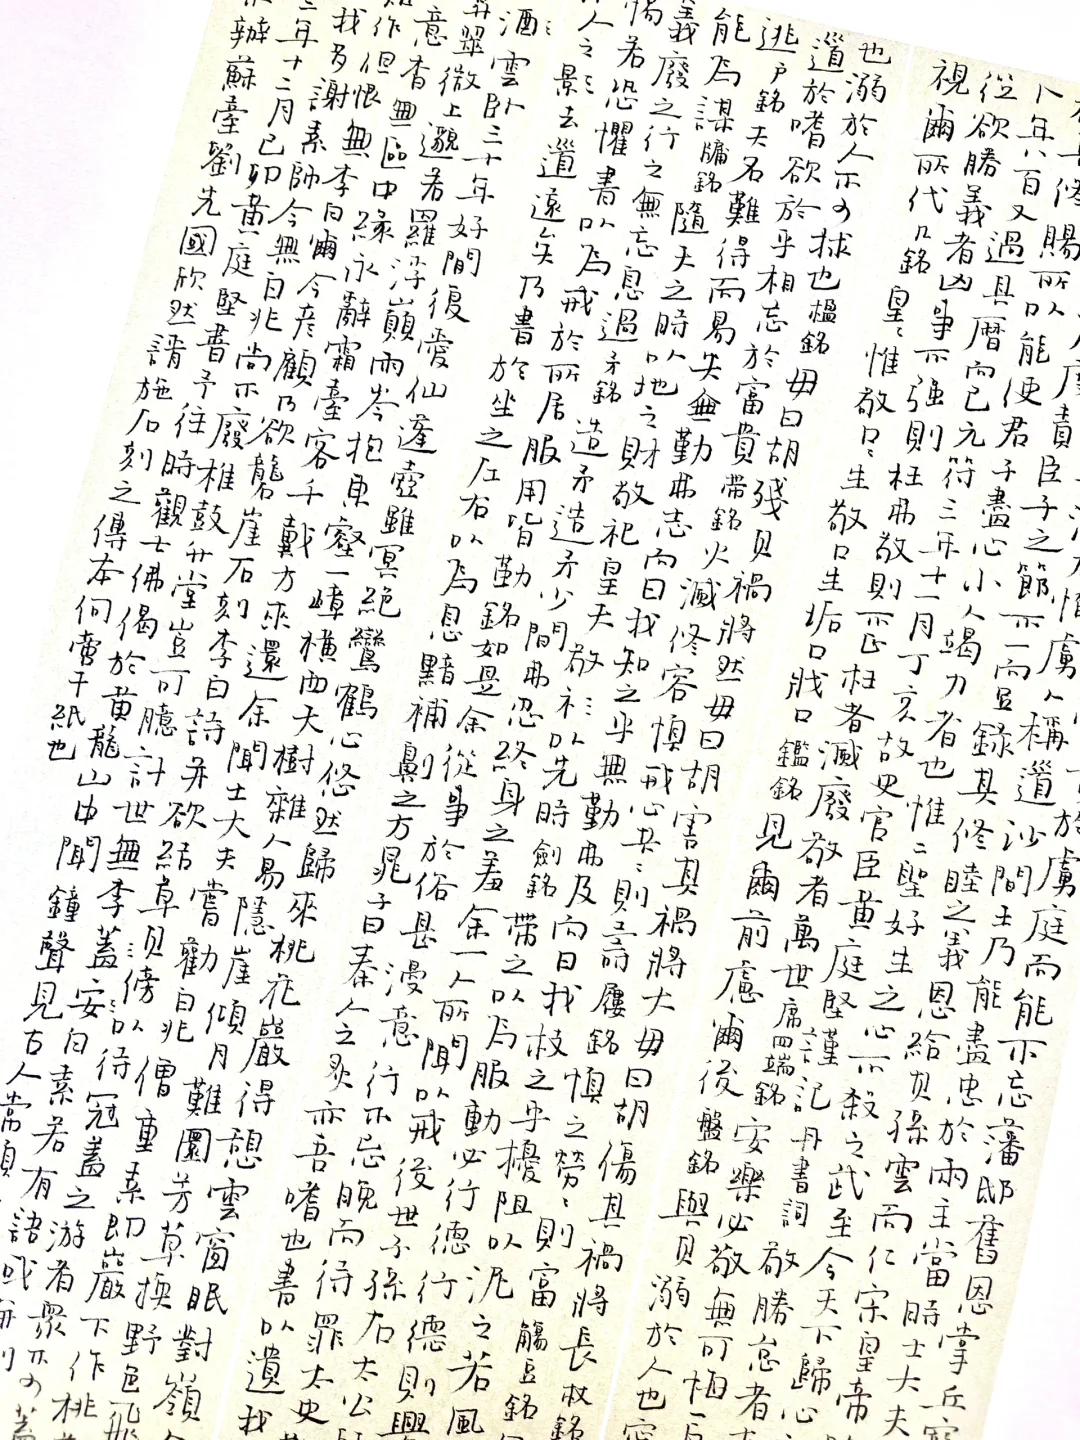 於虜庭而能不忘藩邸舊恩掌丘
惟虜人稱道沙間王乃能盡忠於兩主當時士大夫
責臣子之節不一而足錄其修睦之義恩給其孫雲而仁宋皇帝
修賜所以能使君子盡心小人竭力者也惟二聖好生之心不殺之武至今天下歸心
卜年八百又過其曆而已元符三年十一月丁亥故史官臣黃庭堅謹記丹書詞敬勝怠者
從欲勝義者凶事不強則枉弗敬則不正枉者滅廢敬者萬世席四端銘安樂必敬無可悔一反
視爾所代几銘皇皇惟敬口口生敬口生垢口戕口鑑銘見爾前慮爾後盤銘與其溺於人也寧
也溺於人不可捄也楹銘毋曰胡殘其禍將然毋曰胡害其禍將大毋曰胡傷其禍將長杖銘
道於嗜欲於乎相忘於富貴帶銘火滅修容慎戒必共共則壽屨銘慎之勞勞則富觴豆銘
逃户銘夫名難得而易失無勤弗志而曰我知之乎無勤弗及而曰我杖之乎擾阻以泥之若風
能為謀牖銘隨天之時以地之財敬祀皇天敬以先時劍銘帶之以為服動必行德行德則興
義廢之行之無忘息過矛銘造矛造矛少間弗忍終身之羞余一人所聞以戒後世子孫右太公
惕若恐懼書以為戒於所居服用皆勒銘如是余從事於俗甚漫意行不忌晚而得罪太史
人之景去道遠矣乃書於坐之左右以為息黥補劓之方晁子曰秦人之炙亦吾嗜也書以遺我
酒雲卧三十年好閒復愛仙蓬壺雖冥絕鸞鶴心悠然歸來桃花巖得憩雲窗眠對嶺
昇翠微上邈若羅浮巔兩岑抱東壑一嶂橫西天樹雜人易隱崖傾月難圓芳草換野色飛
意杳無區中緣永辭霜臺客千載方來還余聞士大夫嘗勸白兆僧重素即巖下作桃
作但恨無李白爾今彦顧乃欲礱崖石刻李白詩并欲結草其傍以待冠蓋之游者衆不可
我多謝素師今無白兆尚不廢椎鼓升堂豈可臆計世無李蓋安白素若有語或
三年十二月己卯黃庭堅書予往時觀七佛偈於黃龍山中聞鐘聲見古人常願
辦蘇臺劉先國欣然請施石刻之傳本何啻千紙也